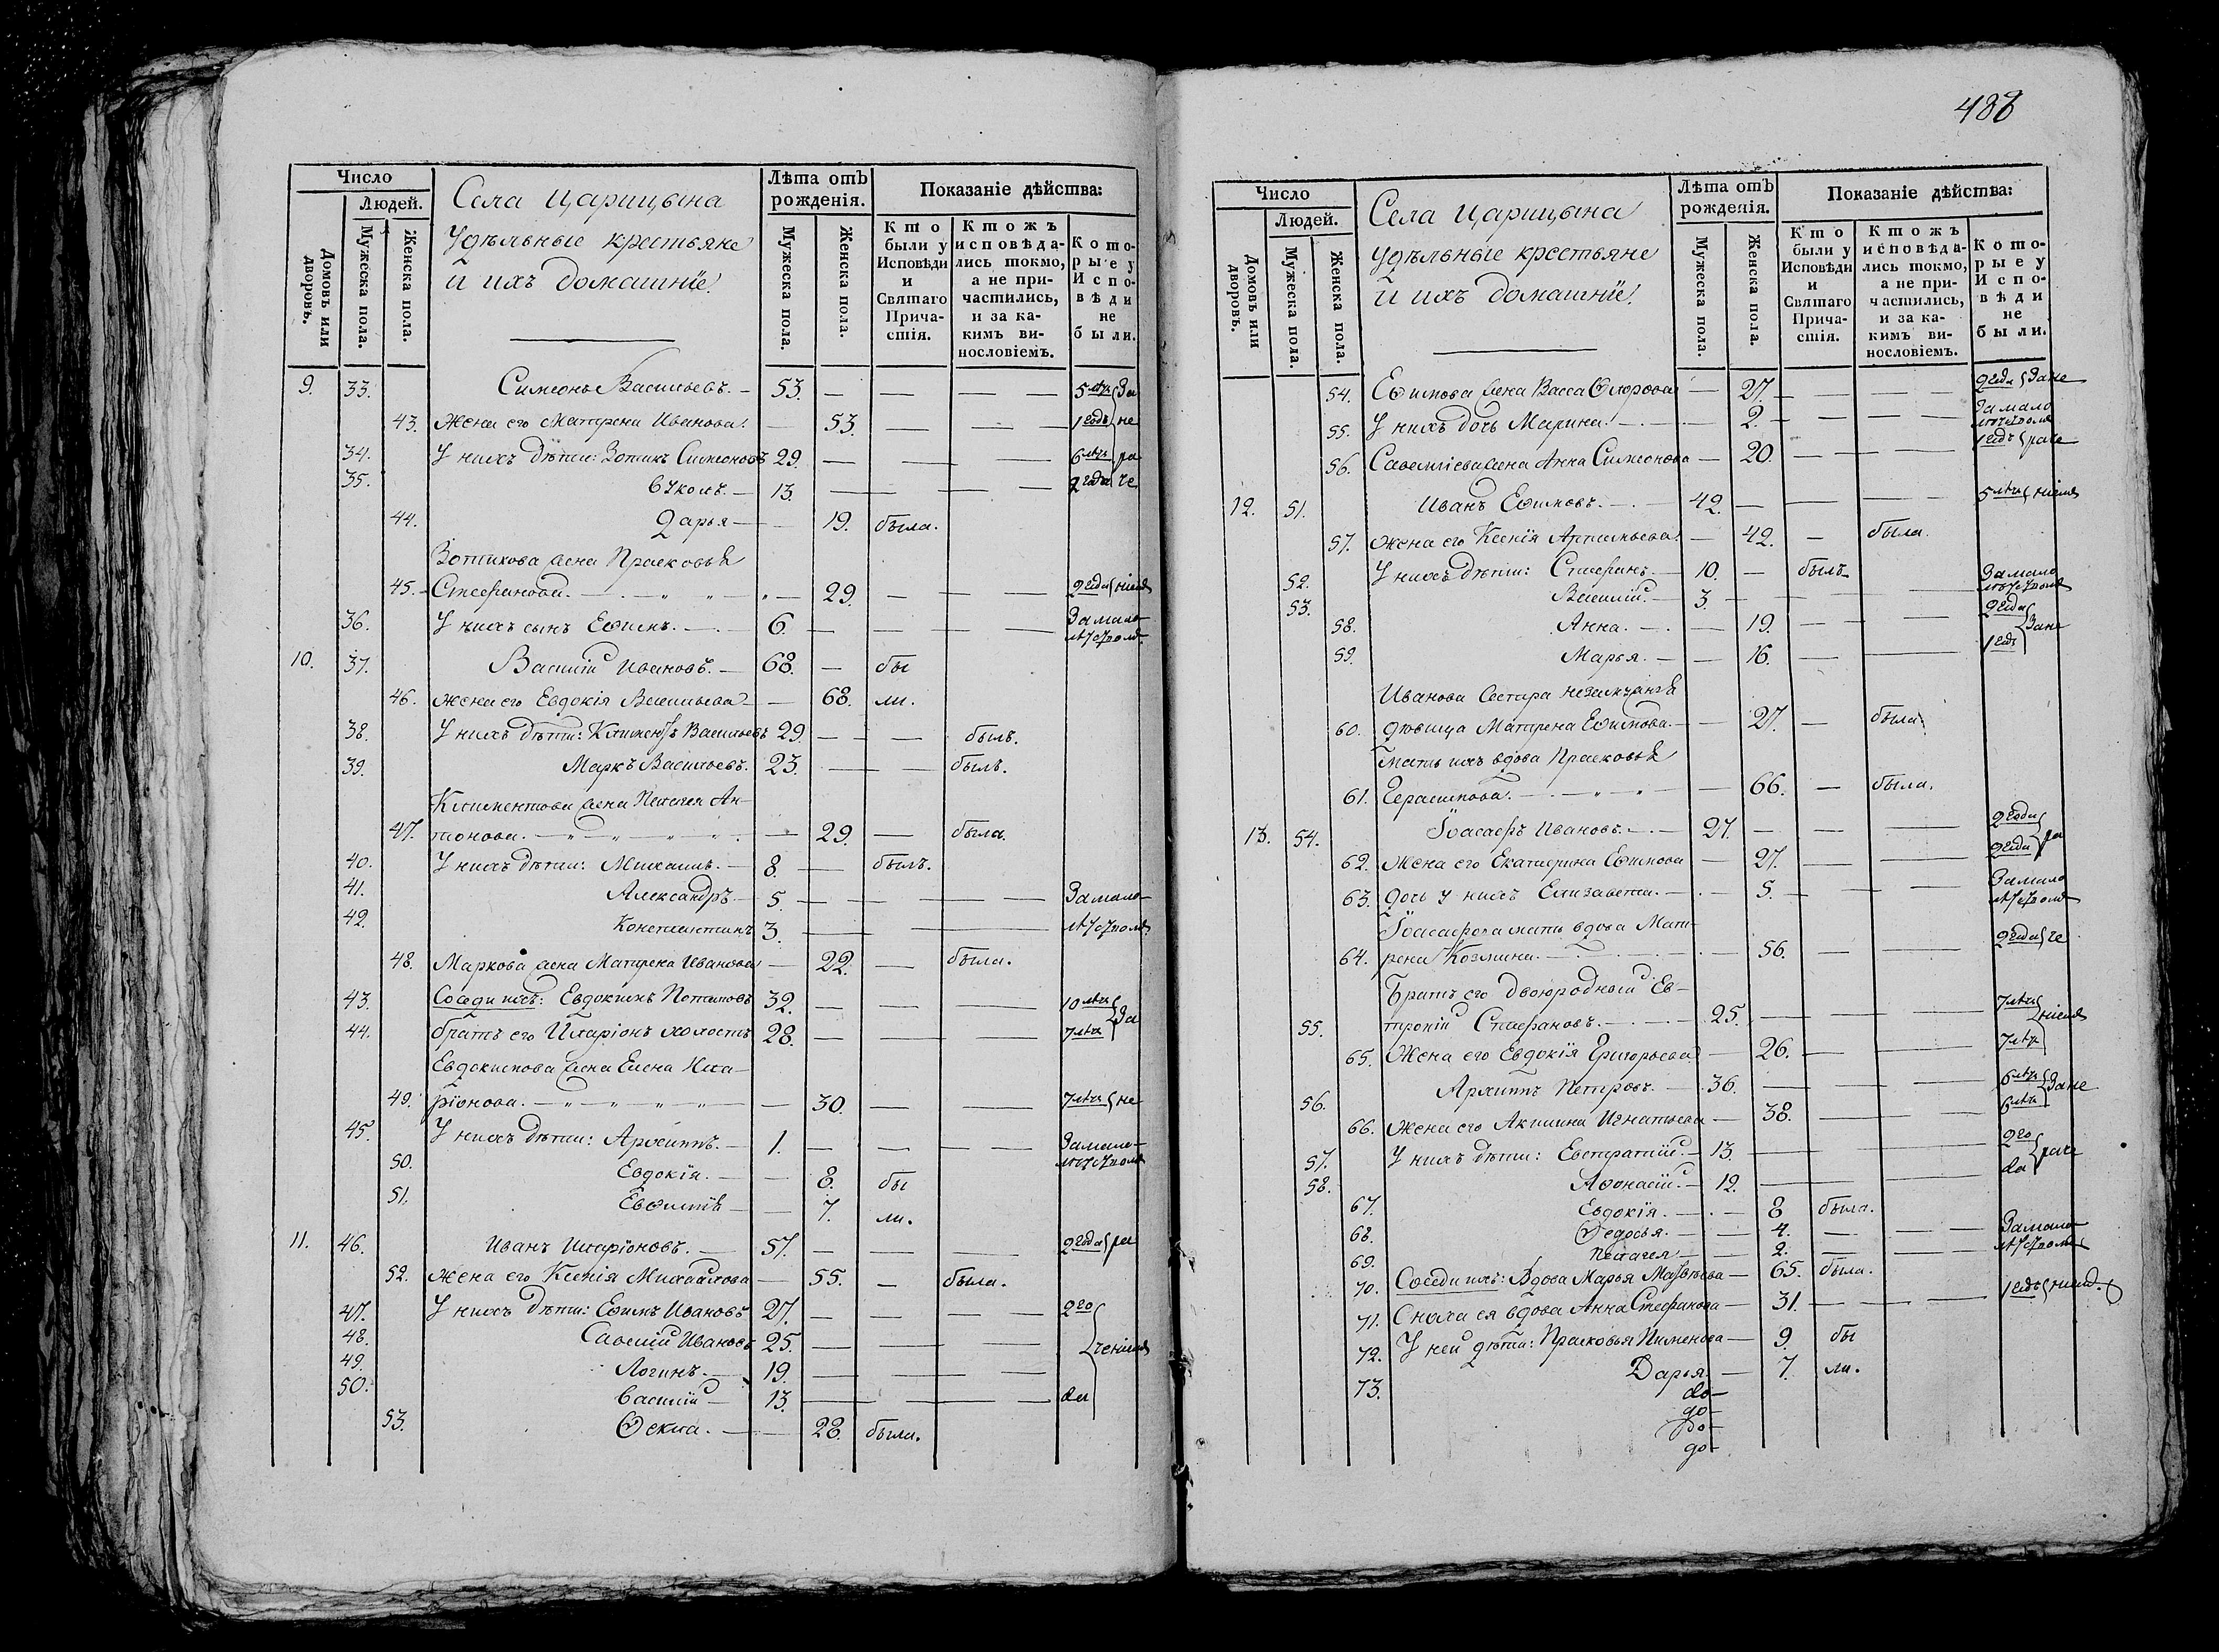 Число
Людей.
Домовъ или дворовъ.
Мужеска пола.
Женска пола.
Села Царицына
Удѣльные крестьяне
и ихъ домашніе.
Лѣта отъ рожденія.
Мужеска пола.
Женска пола.
Показаніе дѣйства:
Кто были у Исповѣди и Святаго Причастія.
Ктожъ исповѣдались токмо, а не причастились, и за какимъ винословіемъ.
Которые у Исповѣди не были.
9. 33. Симеонъ Васильевъ. — 53. — — — — 5 лѣтъ За
43. Жена его Матрена Иванова. — 53. — — — 1 годъ не
34. У нихъ дѣти: Зотикъ Симеоновъ 29. — — — 6 лѣтъ ра
35. — 13. — — — 2 года че
44. Дарья — — 19. была.
Зотикова жена Прасковья
45. Стефанова. — 29. — — — 2 года ніемъ
36. У нихъ сынъ Ефимъ. — 6. — — — За мало-
лѣтствомъ
10. 37. Василій Ивановъ. — 68. — бы
46. жена его Евдокія Васильева — 68. ли.
38. У нихъ дѣти: Климентъ Васильевъ 29. — — былъ.
39. Маркъ Васильевъ. 23. — — былъ.
Климентова жена Пелагея Ан-
47. тонова. — 29. — была.
40. У нихъ дѣти: Михаилъ. — 8. — былъ.
41. Александръ — 5. — — — — За мало-
42. Константинъ 3. — — — лѣтствомъ.
48. Маркова жена Матрена Иванова — 22. — была.
43. Соседи ихъ: Евдокимъ Потаповъ 32. — — — 10 лѣтъ
44. братъ его Иларіонъ холостъ 28. — — — 7 лѣтъ За
Евдокимова жена Елена Ила-
49. ріонова. — 30. — — 7 лѣтъ не
45. У нихъ дѣти: Архиппъ. — 1. — — — За мало-
лѣтствомъ
50. Евдокія. — — 8. бы
51. Евфимія — — 7. ли.
11. 46. Иванъ Иларіоновъ. — 57. — — — 2 года ра
52. жена его Ксенія Михайлова — 55. — была.
47. У нихъ дѣти: Ефимъ Ивановъ 27. — — — 2 го
48. Савелій Ивановъ 25. — — — ченіемъ
49. Логинъ. — 19. — — —
50. Василій — 13. — — — да
53. Фекла. — — 28. была.
488
Число
Людей.
Домовъ или дворовъ.
Мужеска пола.
Женска пола.
Села Царицына
удѣльные крестьяне
и ихъ домашніе.
Лѣта отъ рожденія.
Мужеска пола.
Женска пола.
Показаніе дѣйства:
Кто были у Исповѣди и Святаго Причастія.
Ктожъ исповѣдались токмо, а не причастились, и за какимъ винословіемъ.
Которые у Исповѣди не были.
54. Ефимова жена Васса Флорова — 27. — — — 2 года Зане
55. У нихъ дочь Марина. — 2. — — — За мало
лѣтствомъ
56. Савеліева жена Анна Симеонова — 20. — — — 1 годъ раче
12. 51. Иванъ Ефимовъ. — 42. — — — 5 лѣтъ ніемъ
57. жена его Ксенія — 42. — была.
52. У нихъ дѣти: Стефанъ. — 10. — былъ
53. Василій. — 3. — — — За мало
лѣтствомъ
58. Анна. — — 19. — — 2 года Зане
59. Марья. — — 16. — — 1 годъ
Иванова сестра незамужняя
60. дѣвица Матрена Ефимова. — 27. — была.
Мать ихъ вдова Прасковья
61. Герасимова. — 66. — была.
13. 54. Іоасафъ Ивановъ. — 27. — — — 2 года
62. Жена его Екатерина Ефимова — 27. — — — 2 года ра
63. дочь у нихъ Елизавета. — 5. — — — За мало
лѣтствомъ
Іоасафова мать вдова Мат-
64. рена Козмина. — 56. — — 2 года че
Братъ его двоюродный Ев-
55. тропій Стефановъ. — 25. — — — 7 лѣтъ ніемъ
65. Жена его Евдокія Григорьева — 26. — — 7 лѣтъ
56. Архиппъ Петровъ. — 36. — — — 6 лѣтъ Зане
66. Жена его Акилина Игнатьева — 38. — — 6 лѣтъ
57. У нихъ дѣти: Евстратій. — 13. — — — 2 го раче
58. Афонасій. — 12. — — — да
67. Евдокія. — — 8 была.
68. Федосья. — — 4. — — — За мало-
69. Пелагея — — 2. — — — лѣтствомъ
70. Соседи ихъ: Вдова Марья Матвѣева — 65. была.
71. Сноха ея вдова Анна Стефанова — 31. — — — 1 годъ ніемъ.
72. У ней дѣти: Прасковья Пименова — 9. бы
73. Дарья. — 7. ли.